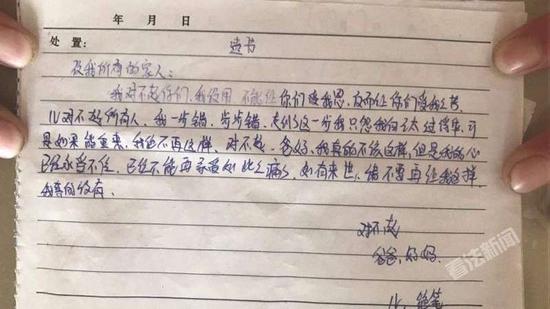 年 月 日
处 置：
遗书
致我所有的家人：
我对不起你们，我没用 不能让你们享我恩，反而让你们受我之苦。
儿对不起所有人，我一步错，步步错，走到这一步我只怨我自己太过懦弱，可
是如果能重来，我也不再这样。对不起，爸妈，我真的不该这样，但是我的心
已经承当不住，已经不能再承受如此之痛了，如有来世，绝不要再让我这样，
我真的没有。
对不起
爸爸，妈妈
儿，绝笔
看法新闻